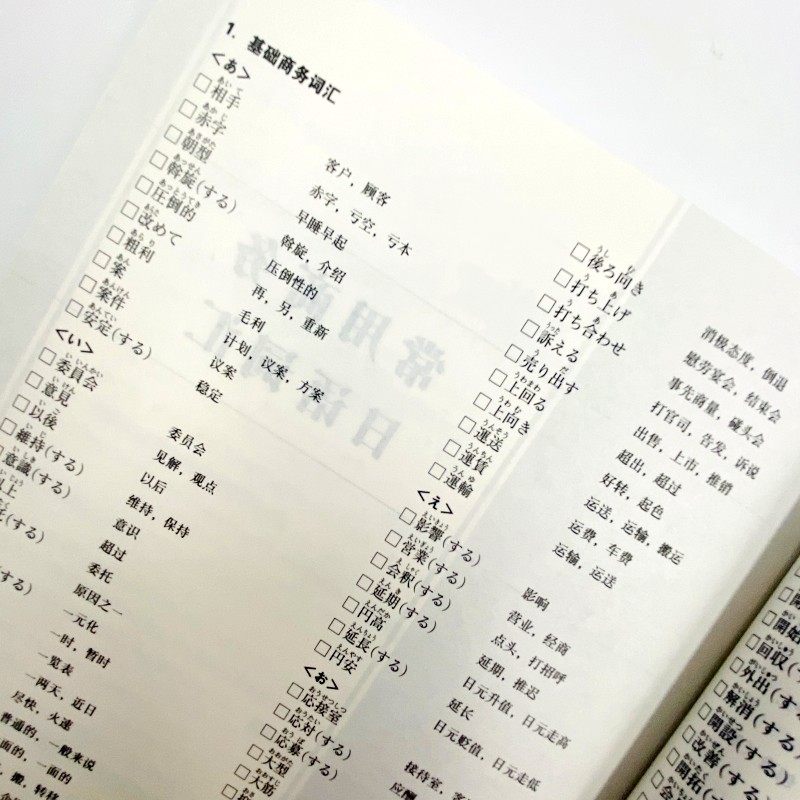 1. 基础商务词汇
<あ>
□相手 客户，顾客
□赤字 赤字，亏空，亏本
□朝型 早睡早起
□斡旋(する) 斡旋，介绍
□圧倒的 压倒性的
□改めて 再，另，重新
□粗利 毛利
□案 计划，议案，方案
□案件 议案
□安定(する) 稳定
<い>
□委員会 委员会
□意見 见解，观点
□以後 以后
□維持(する) 维持，保持
意識(する) 意识
以上 超过
(する) 委托
原因之一
一元化
(する) 一时，暂时
一览表
一两天，近日
尽快，火速
普通的，一般来说
面的，一面的
搬，转移
□後ろ向き 消极态度，倒退
□打ち上げ 慰劳宴会，结束会
□打ち合わせ 事先商量，碰头会
□訴える 打官司，告发，诉说
□売り出す 出售，上市，推销
□上回る 超出，超过
□上向き 好转，起色
□運送 运送，运输，搬运
□運賃 运费，车费
□運輸 运输，运送
<え>
□影響(する) 影响
□営業(する) 营业，经商
□会釈(する) 点头，打招呼
□延期(する) 延期，推迟
□円高 日元升值，日元走高
□延長(する) 延长
□円安 日元贬值，日元走低
<お>
□応接室 接待室，客
□応対(する) 应酬
□応募(する)
□大型
□大筋
□開始
□回収(
□外出(
□解消(
□開設(する)
□改善(する)
□開拓(する)